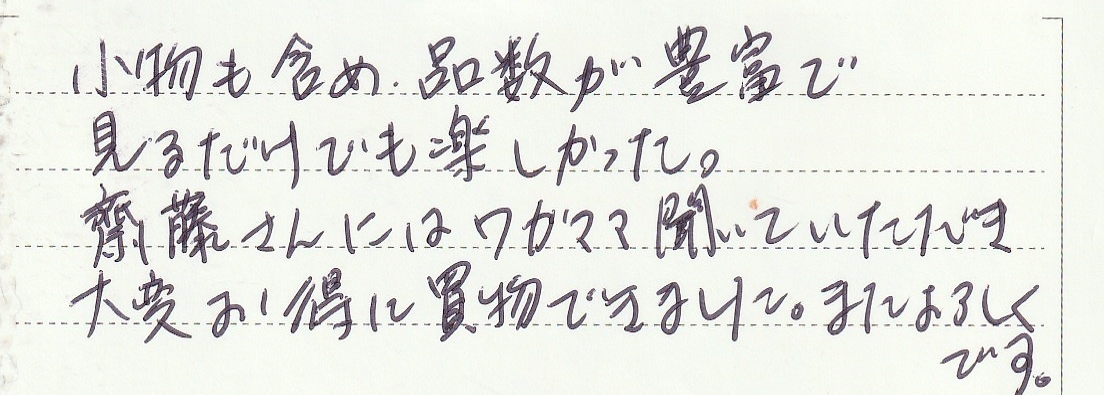 小物も含め、品数が豊富で
見るだけでも楽しかった。
齋藤さんにはワガママ聞いていただき
大変お得に買物できました。またよろしく
です。